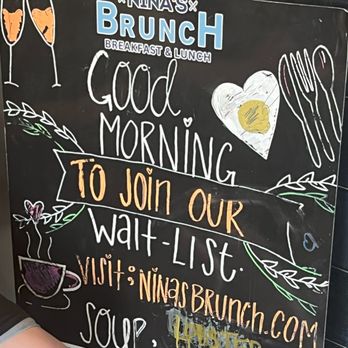 NINA'S
BRUNCH
BREAKFAST & LUNCH
GOOD
MORNING
TO JOIN OUR
WAIT-LIST.
VISIT; NINASBRUNCH.COM
SOUP,